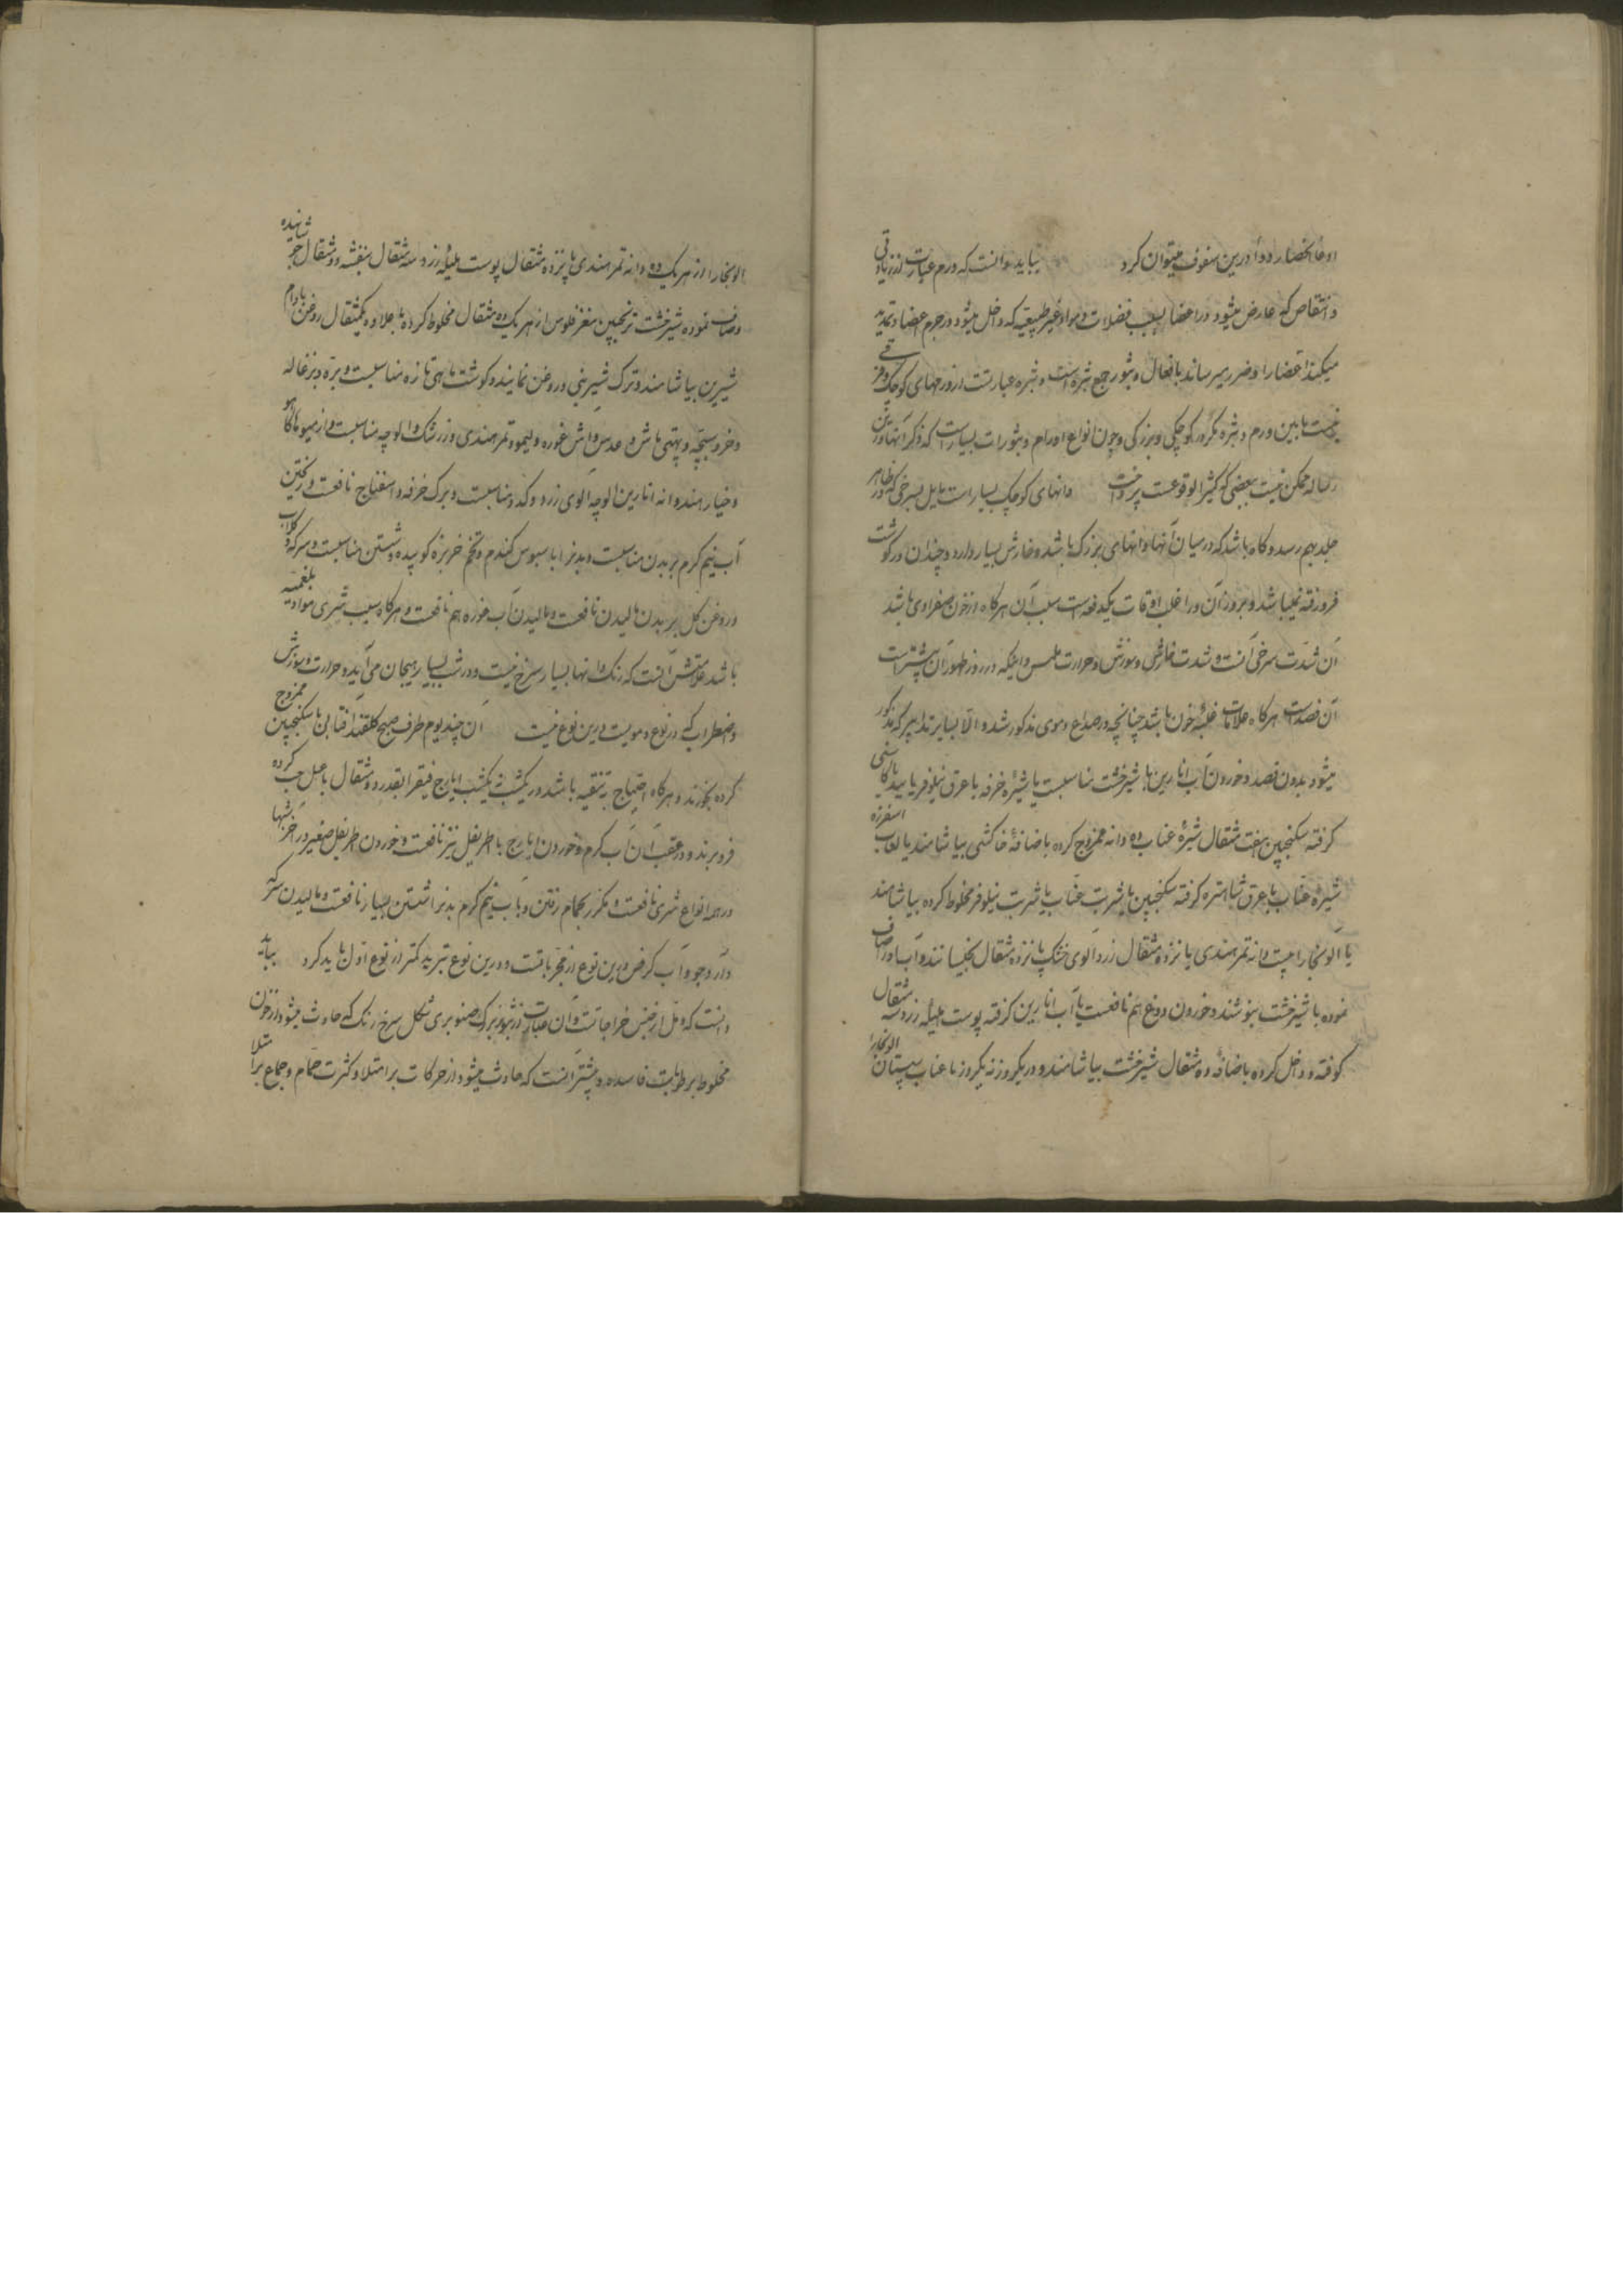 ادعا انحصار دوا درین سفوف میتوان کرد بباید دانست که ورم عبارت از زیادتی
و انتقاص که عارض میشود در اعضا بسبب فضلات و مواد غیر طبیعیه که داخل میشود در جرم اعضا و تمدید
میکند اعضا را و ضرر میرساند بافعال و بثور جمع بثره است و بثره عبارتست از ورمهای کوچک و فرقی
نیست مابین ورم و بثره مگر در کوچکی و بزرگی و چون انواع اورام و بثورات بسیار است که ذکر آنها درین
رساله ممکن نیست ببعضی که کثیر الوقوعست پرداخت دانهای کوچک بسیار است مایل بسرخی که در ظاهر
جلد بهم رسد و گاه باشد که در میان آنها دانهای بزرگ باشد و خارش بسیار دارد و چندان در گوشت
فرو رفته نمیباشد و بروز آن در اغلب اوقات یکدفعه است سبب آن هرگاه از خون صفراوی باشد
آن شدت سرخی آنست و شدت خارش و سوزش و حرارت ملمس و اینکه در روز ظهور آن بیشتر است
آن فصد است هرگاه علامات غلبهٔ خون باشد چنانچه در صداع دموی مذکور شد و الا بسایر تدابیر که مذکور
میشود بدون فصد و خوردن آب انارین با شیرخشت مناسبست یا شیرهٔ خرفه با عرق نیلوفر یا بید یا کاسنی
گرفته سکنجبین هفت مثقال شیرهٔ عناب ده دانه ممزوج کرده باضافهٔ خاکشی بیاشامند یا لعاب اسفرزه
شیرهٔ عناب با عرق شاهتره گرفته سکنجبین با شربت عناب یا شربت نیلوفر مخلوط کرده بیاشامند
یا آلوبخارا بیست دانه تمرهندی پانزده مثقال زردآلوی خشک پانزده مثقال بخیسانند و آب او را صاف
نموده با شیرخشت بنوشند و خوردن دوغ هم نافعست یا آب انارین گرفته پوست هلیله زرد سه مثقال
کوفته و داخل کرده باضافه ده مثقال شیرخشت بیاشامند و در یکروز نه یکروز با عناب سپستان آلوبخارا
الوبخارا از هریک ده دانه تمرهندی پانزده مثقال پوست هلیله زرد سه مثقال بنفشه دو مثقال جوشانیده
و صاف نموده شیرخشت ترنجبین مغز فلوس از هریک ده مثقال مخلوط کرده با یکمثقال روغن بادام
شیرین بیاشامند و ترک شیرینی و روغن نمایند و گوشت ماهی تازه مناسبست و بره و بزغاله
و خروسبچه و بهتی ماش و عدس و آش غوره و لیمو و تمرهندی و زرشک و آلوچه مناسبست و از میوها کاهو
و خیار هندوانه انارین الوچه الوی زرد و کدو مناسبست و برگ خرفه و اسفناج نافعست و ریختن
آب نیم گرم بر بدن مناسبست و بدن را با سبوس گندم و تخم خربزه کوبیده شستن مناسبست و سرکه و گلاب
و روغن گل بر بدن مالیدن نافعست و مالیدن آب غوره هم نافعست و هرگاه سبب شری مواد بلغمیه
باشد علامتش آنست که رنگ دانها بسیار سرخ نیست و در شب بسیار بهیجان می‌آید و حرارت و سوزش
و اضطراب که در نوع دمویست درین نوع نیست آن چند یوم طرف صبح گلقند آفتابی با سکنجبین ممزوج
کرده بخورند و هرگاه احتیاج بتنقیه باشد در یکشب نه یکشب ایارج فیقرا بقدر دو مثقال با عسل حب کرده
فرو برند و در عقب آن آب گرم و خوردن ایارج با اطریفل نیز نافعست و خوردن اطریفل صغیر در آخر شبها
در همه انواع شری نافعست و مکرر بحمام رفتن و با آب نیم گرم بدن را شستن بسیار نافعست و مالیدن سرکه
و آرد جو و آب کرفس درین نوع از مجرباتست و درین نوع تبرید کمتر از نوع اول باید کرد بباید
دانست که دمل از جنس خراجاتست و آن عبارت از بثور بزرگ صنوبری شکل سرخ رنگ که حادث میشود از خون
مخلوط برطوبت فاسده و بیشتر آنست که حادث میشود از حرکات بر امتلا و کثرت حمام و جماع بر امتلا